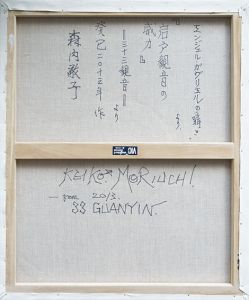 エンジェルガヴリエルの
より
観音の
力』
=三十三観音=
より
癸巳二〇十三年 作
森内敬子
KEIKO MORIUCHI
— from 2013.
33 GUANYIN.